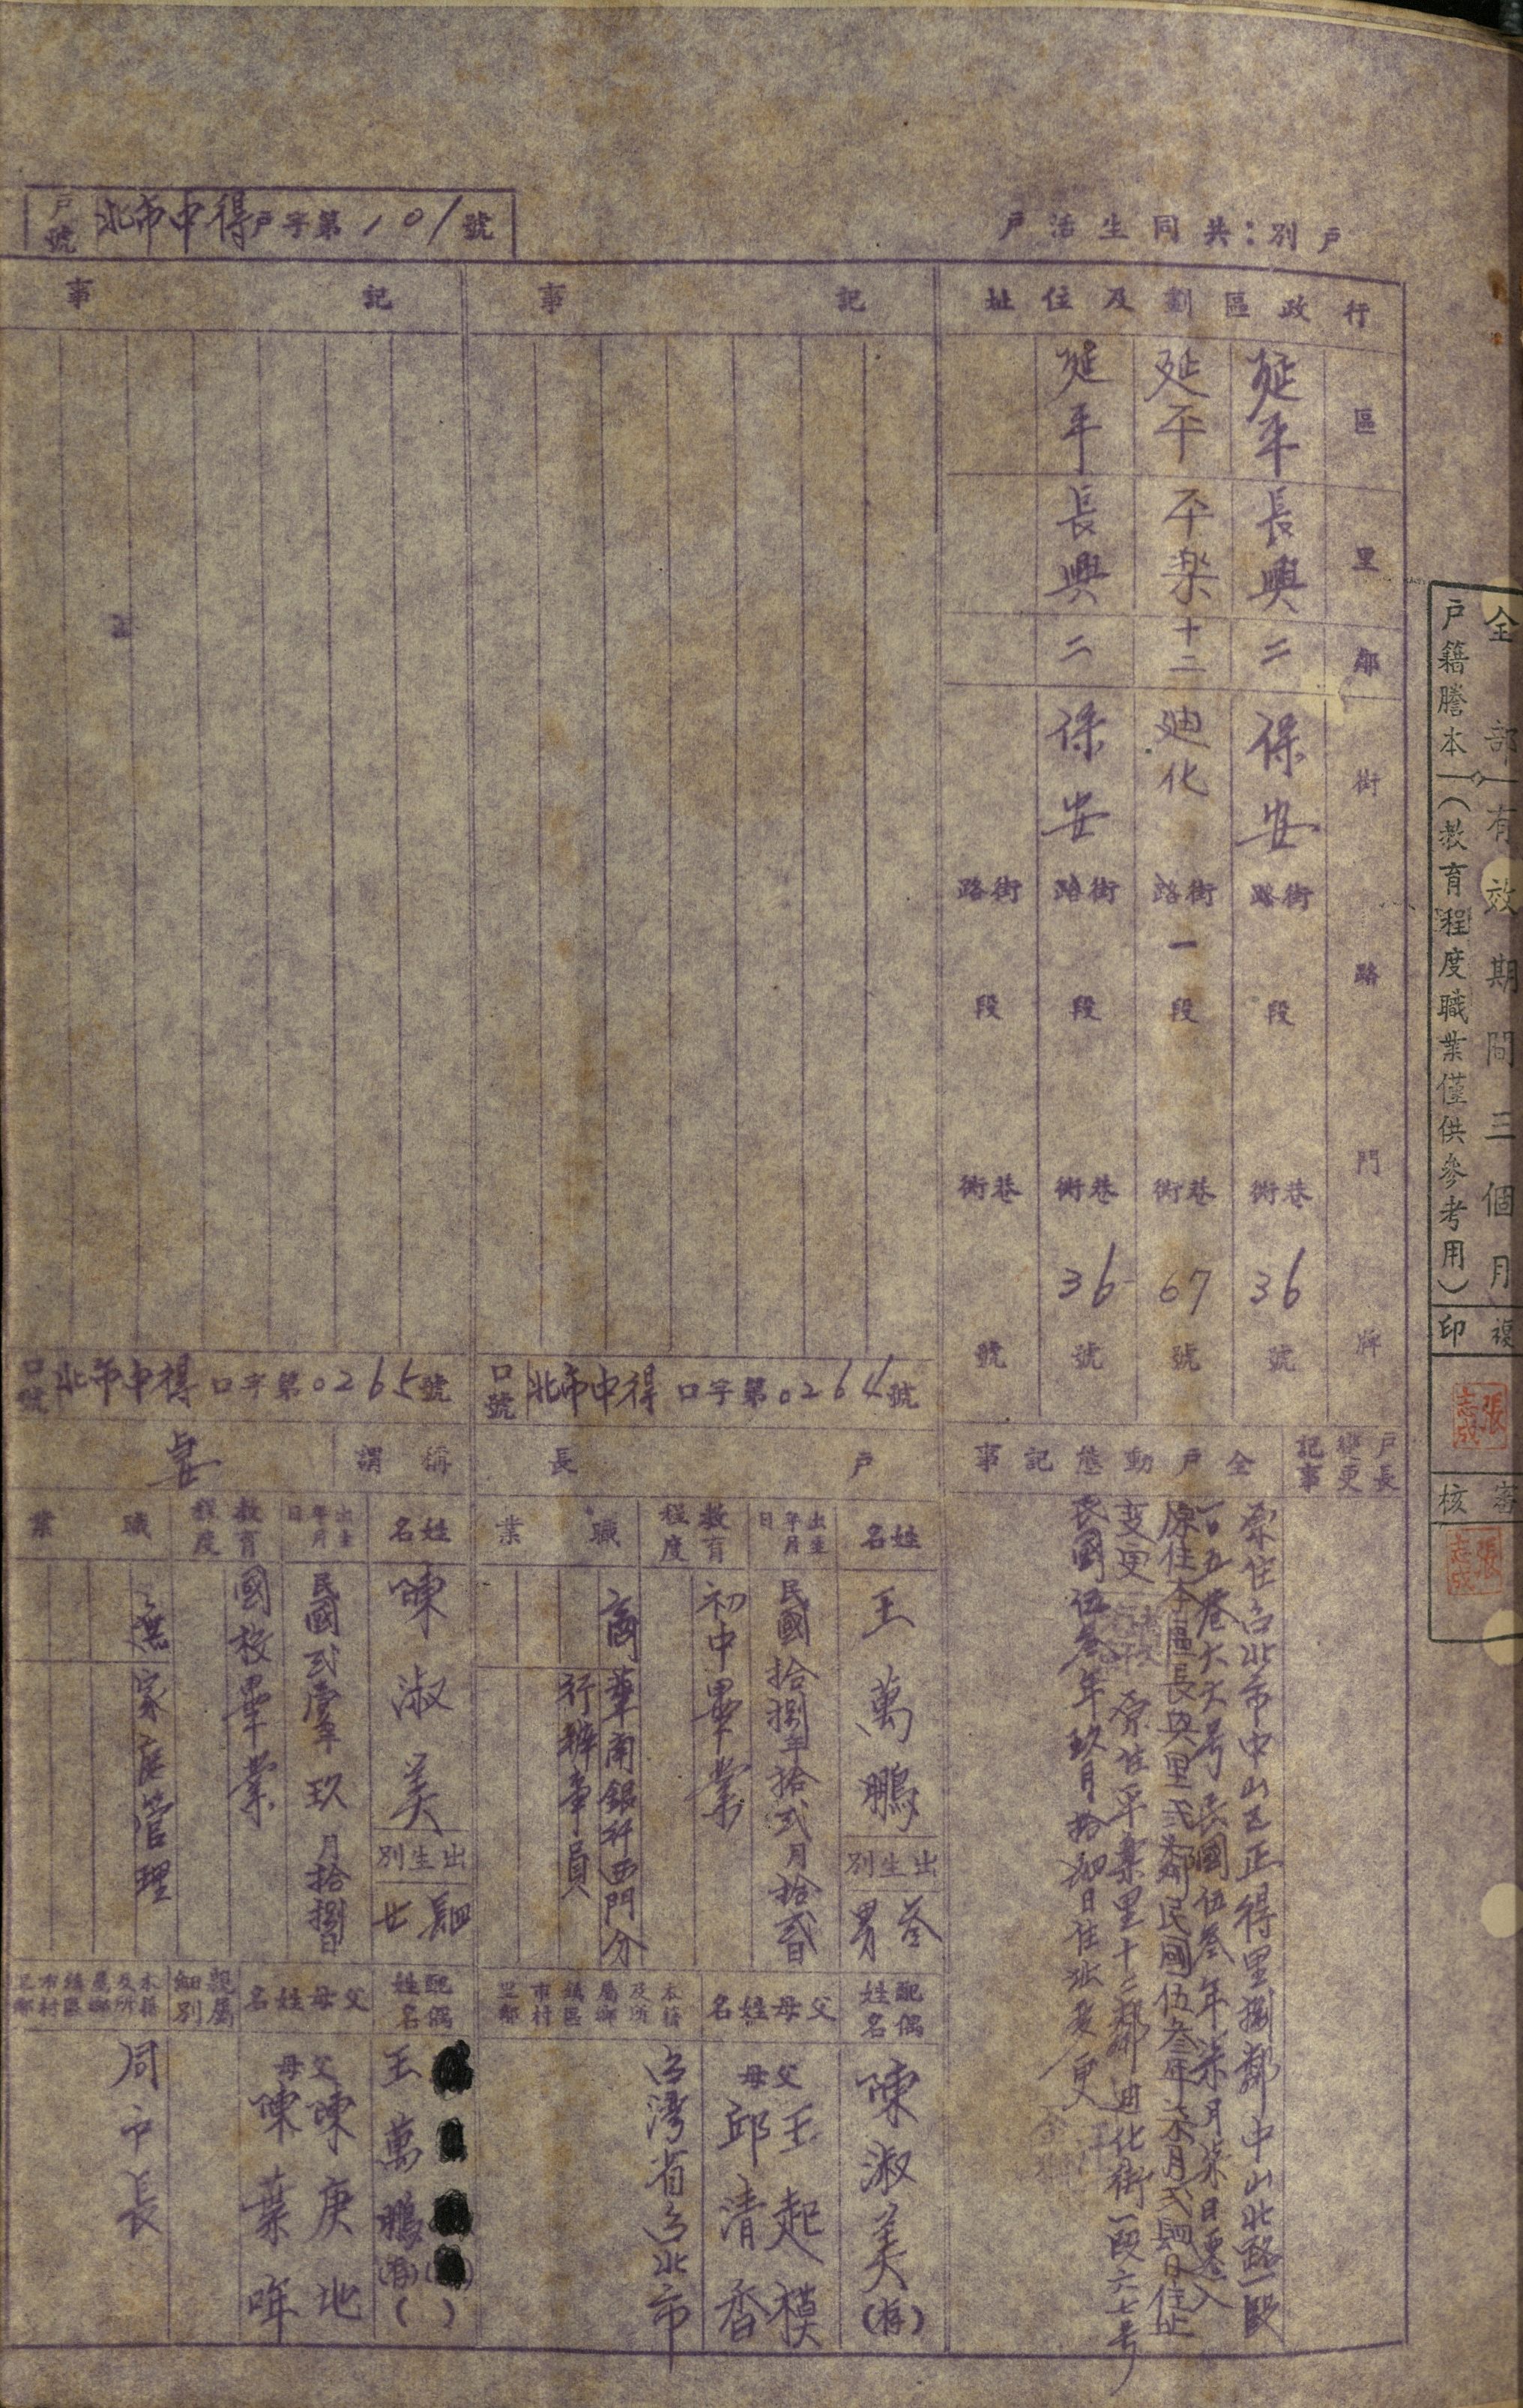 全部
有效期間三個月
戶籍謄本
(教育程度職業僅供參考用)
複印
張志成
審核
張志成
戶別:共同生活戶
戶號 北市中得戶字第101號
行政區劃及住址
區 里 鄰 街路 門牌
延平 長興 二 保安 街路 段 巷衖 36 號
延平 平楽 十二 廸化 街路 一 段 巷衖 67 號
延平 長興 二 保安 街路 段 巷衖 36 號
街路 段 巷衖 號
戶長變更記事
全戶動態記事
原住台北市中山区正得里捌鄰中山北路一段
一0五巷六六号民國伍叁年柒月柒日遷入
原住本區長興里弍鄰民國伍叁年柒月弍肆日住址
變更
原住平楽里十二鄰迪化街一段六七号
民國伍叁年玖月拾肆日住址変更
記事
口號 北市中得口字第0264號
戶長
姓名 王萬鵬
出生別 叁男
出生年月日 民國拾捌年拾弍月拾貳日
教育程度 初中畢業
職業 商 華南銀行西門分
行辦事員
配偶姓名 陳淑美(存)
父母姓名
父 王起模
母 邱清香
本籍及所屬鄉鎮區市村里鄰
台灣省台北市
記事
口號 北市中得口字第0265號
稱謂 妻
姓名 陳淑美
出生別 肆女
出生年月日 民國弍壹年玖月拾捌日
教育程度 國校畢業
職業 無 家庭管理
配偶姓名 王萬鵬(存)
( )
父母姓名
父 陳庚地
母 陳葉
親屬細別
本籍及所屬鄉鎮區市村里鄰
同戶長